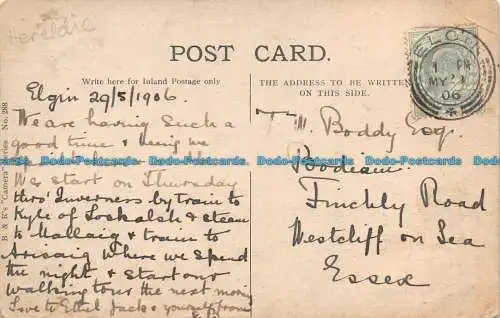 Heraldic
POST CARD.
Write here for Inland Postage only
THE ADDRESS TO BE WRITTEN
ON THIS SIDE.
ELGIN
MY 31
06
B & R's "Camera" Series No. 288
Elgin 29/5/1906.
We are having such a
good time & being we
We start on Thursday
thro' Inverness by train to
Kyle of Loshalsh & steam
to Mallaig & train to
Arisaig where we spend
the night & start our
walking tour the next morning
Love to Ethel Jack & yourself from
W. Boddy Esq.
Bodeam.
Finchly Road
Westcliff on Sea
Essex
www.bidstart.com